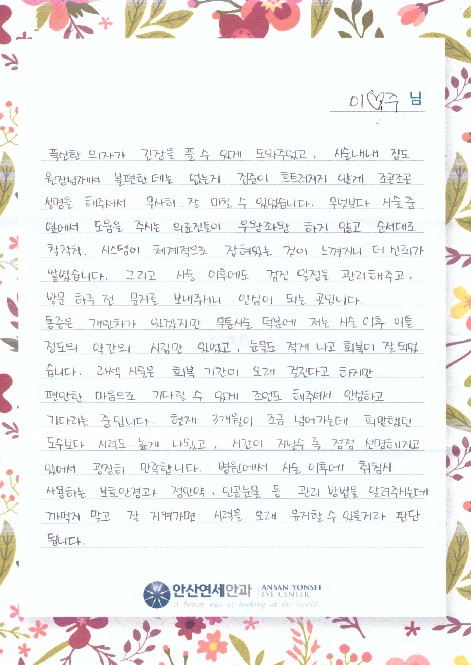 이♡주 님
푹신한 의자가 긴장을 풀 수 있게 도와주었고, 시술내내 집도
원장님께서 불편한 데는 없는지 집중이 흐트러지지 않게 조곤조곤
설명을 해주셔서 무사히 잘 마칠 수 있었습니다. 무엇보다 시술 중
옆에서 도움을 주시는 의료진들이 우왕좌왕 하지 않고 순서대로
착착착. 시스템이 체계적으로 잡혀있는 것이 느껴지니 더 신뢰가
쌓였습니다. 그리고 시술 이후에도 검진 일정을 관리해주고,
방문 하루 전 문자를 보내주시니 안심이 되는 곳입니다.
통증은 개인차가 있겠지만 무통시술 덕분에 저는 시술 이후 이틀
정도의 약간의 시림만 있었고, 눈물도 적게 나고 회복이 잘 되었
습니다. 라섹 시술은 회복 기간이 오래 걸린다고 하지만
편안한 마음으로 기다릴 수 있게 조언도 해주셔서 안심하고
기다리는 중입니다. 현재 3개월이 조금 넘어가는데 희망했던
도수보다 시력도 높게 나왔고, 시간이 지날수록 점점 선명해지고
있어서 굉장히 만족합니다. 병원에서 시술 이후에 취침시
사용하는 보호안경과 점안약, 인공눈물 등 관리 방법을 알려주시는데
까먹지 말고 잘 지켜가면 시력을 오래 유지할 수 있을거라 판단
됩니다.
안산연세안과 ANSAN YONSEI
EYE CENTER
A better way of looking at the world